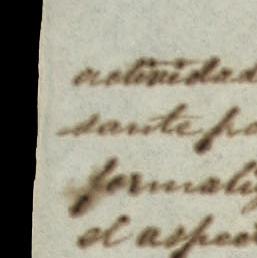 actividad
sante pa
formali
el aspec